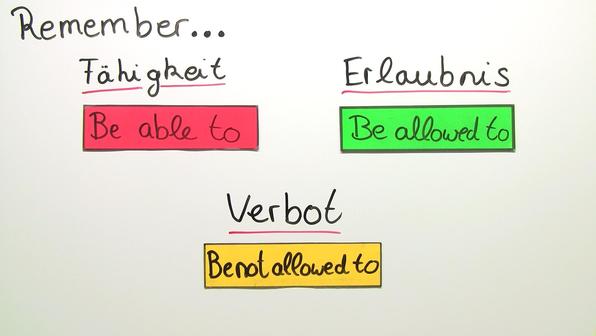 Remember...
Fähigkeit
Erlaubnis
Be able to
Be allowed to
Verbot
Be not allowed to